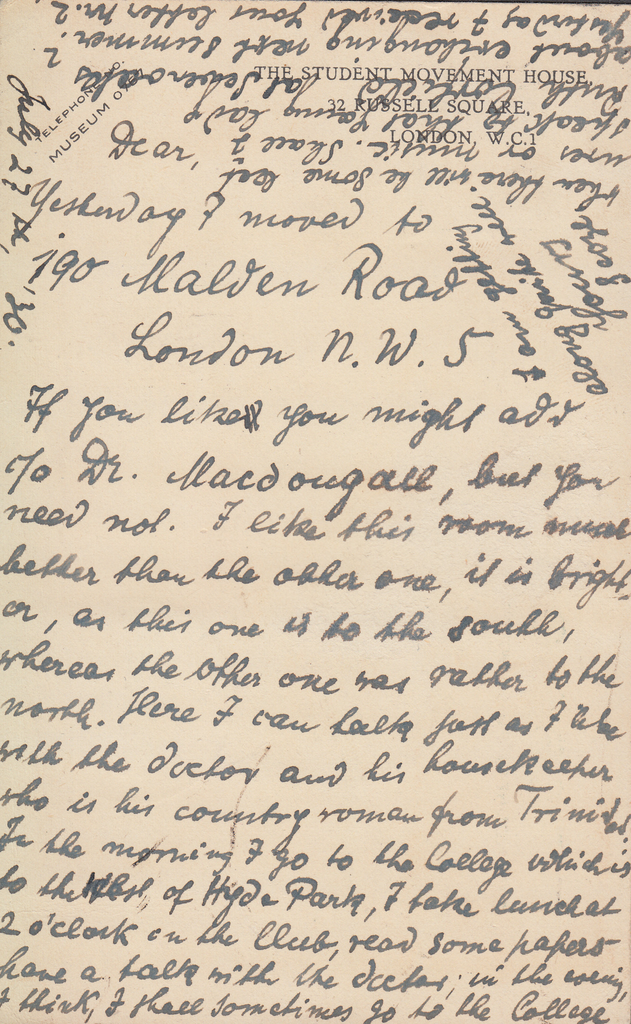 THE STUDENT MOVEMENT HOUSE,
32 RUSSELL SQUARE,
LONDON, W.C.1
TELEPHONE NO.
MUSEUM
July 27th, '30.
Dear,
Yesterday I moved to
190 Malden Road
London N.W. 5
If you like you might add
To Dr. Macdougall, but you
need not. I like this room much
better than the other one, it is bright-
er, as this one is to the south,
whereas the other one was rather to the
north. Here I can talk just as I like
with the doctor and his housekeeper
who is his countrywoman from Trinidad.
In the morning I go to the College which is
to the West of Hyde Park, I take lunch at
2 o'clock in the Club, read some papers
have a talk with the doctor; in the evening,
I think, I shall sometimes go to the College
when there will be some lect
ures or music. Shall I
speak to that young lady
Ruth at Sevenoaks
about exchanging next summer?
Yesterday I received your letter Nr. 2.
I am getting
along quite well
Yours